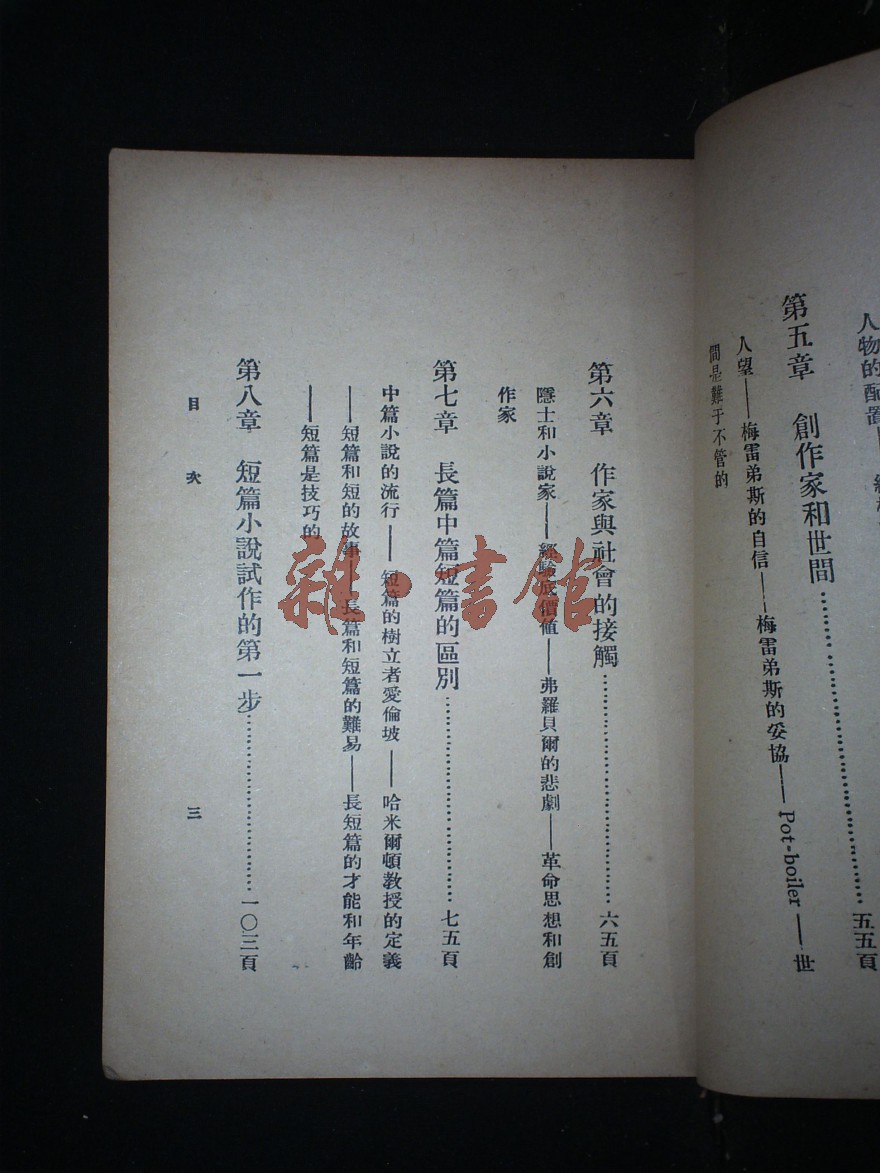 人物的配置
第五章 創作家和世間………五五頁
人望——梅雷弟斯的自信——梅雷弟斯的妥協——Pot-boiler——世
間是難于不管的
第六章 作家與社會的接觸………六五頁
隱士和小說家——經驗底價值——弗羅貝爾的悲劇——革命思想和創
作家
第七章 長篇中篇短篇的區別………七五頁
中篇小說的流行——短篇的樹立者愛倫坡——哈米爾頓教授的定義
——短篇和短的故事——長篇和短篇的難易——長短篇的才能和年齡
——短篇是技巧的
第八章 短篇小說試作的第一步………一〇三頁
目次 三
雜·書館